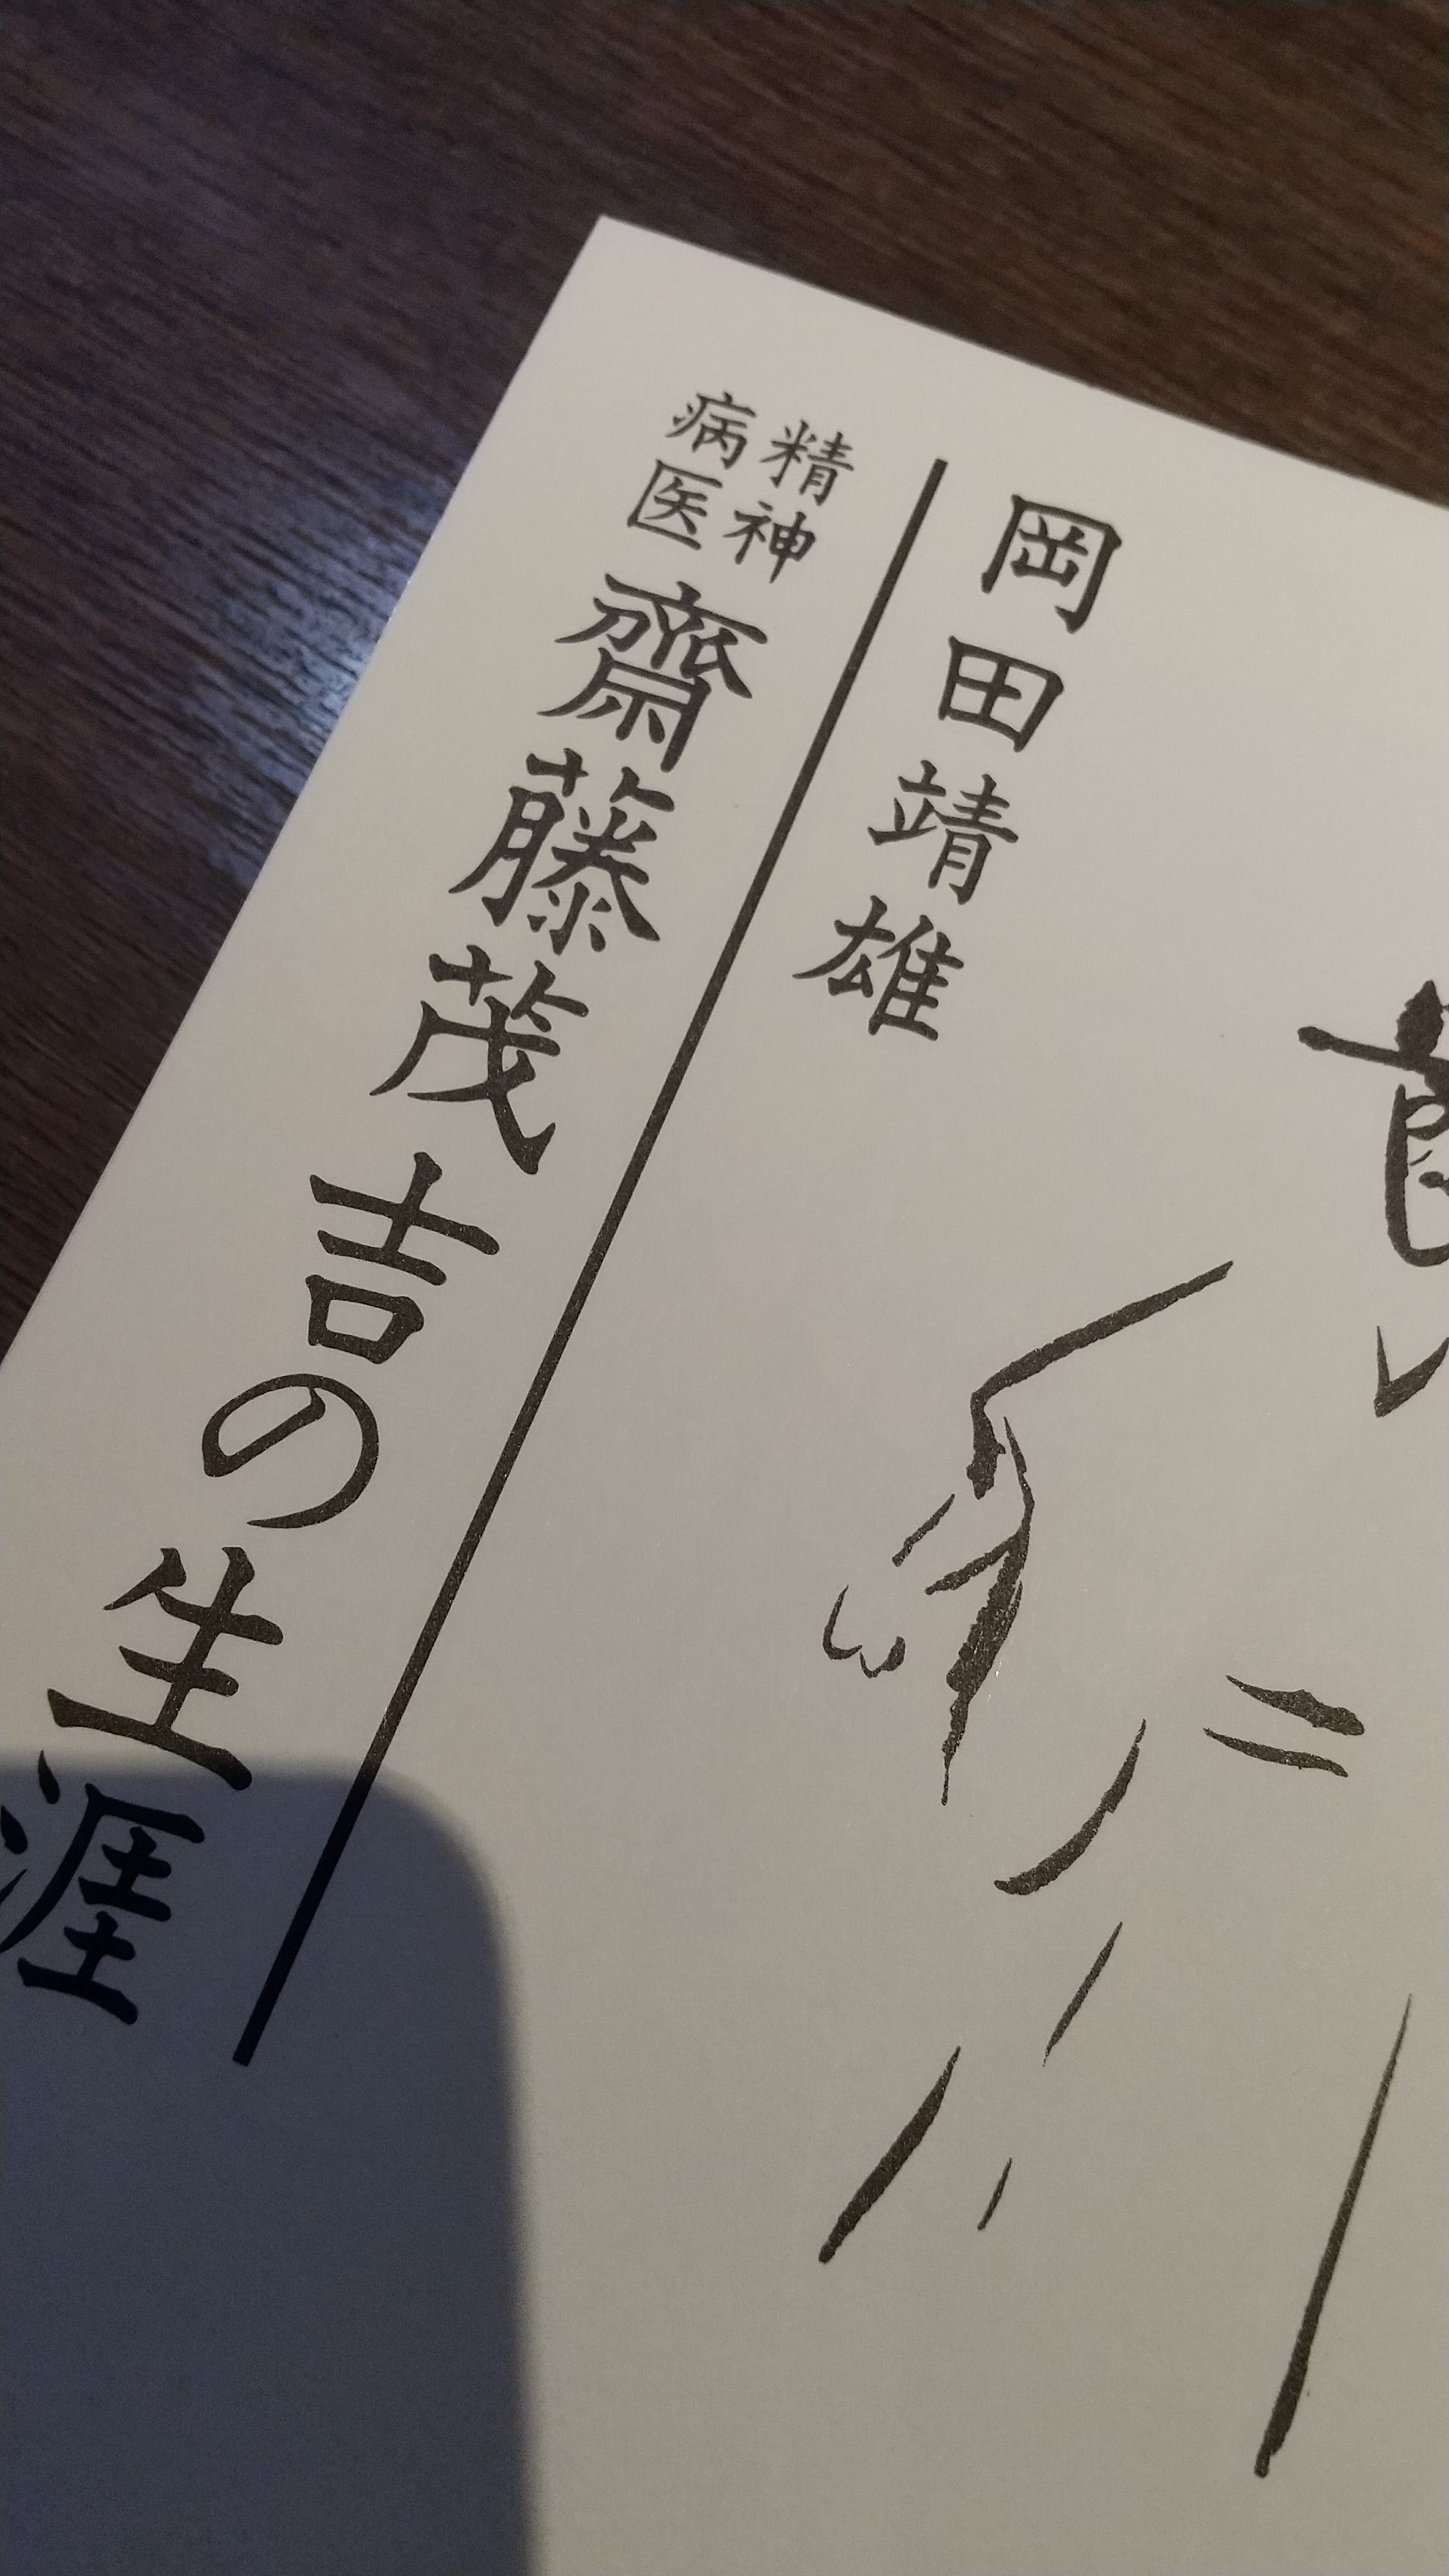 岡田靖雄
精神
病医
齋藤茂吉の生涯